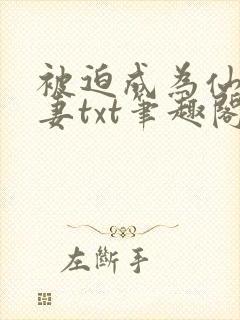 被迫成为仙
妻txt笔趣阁
左断手